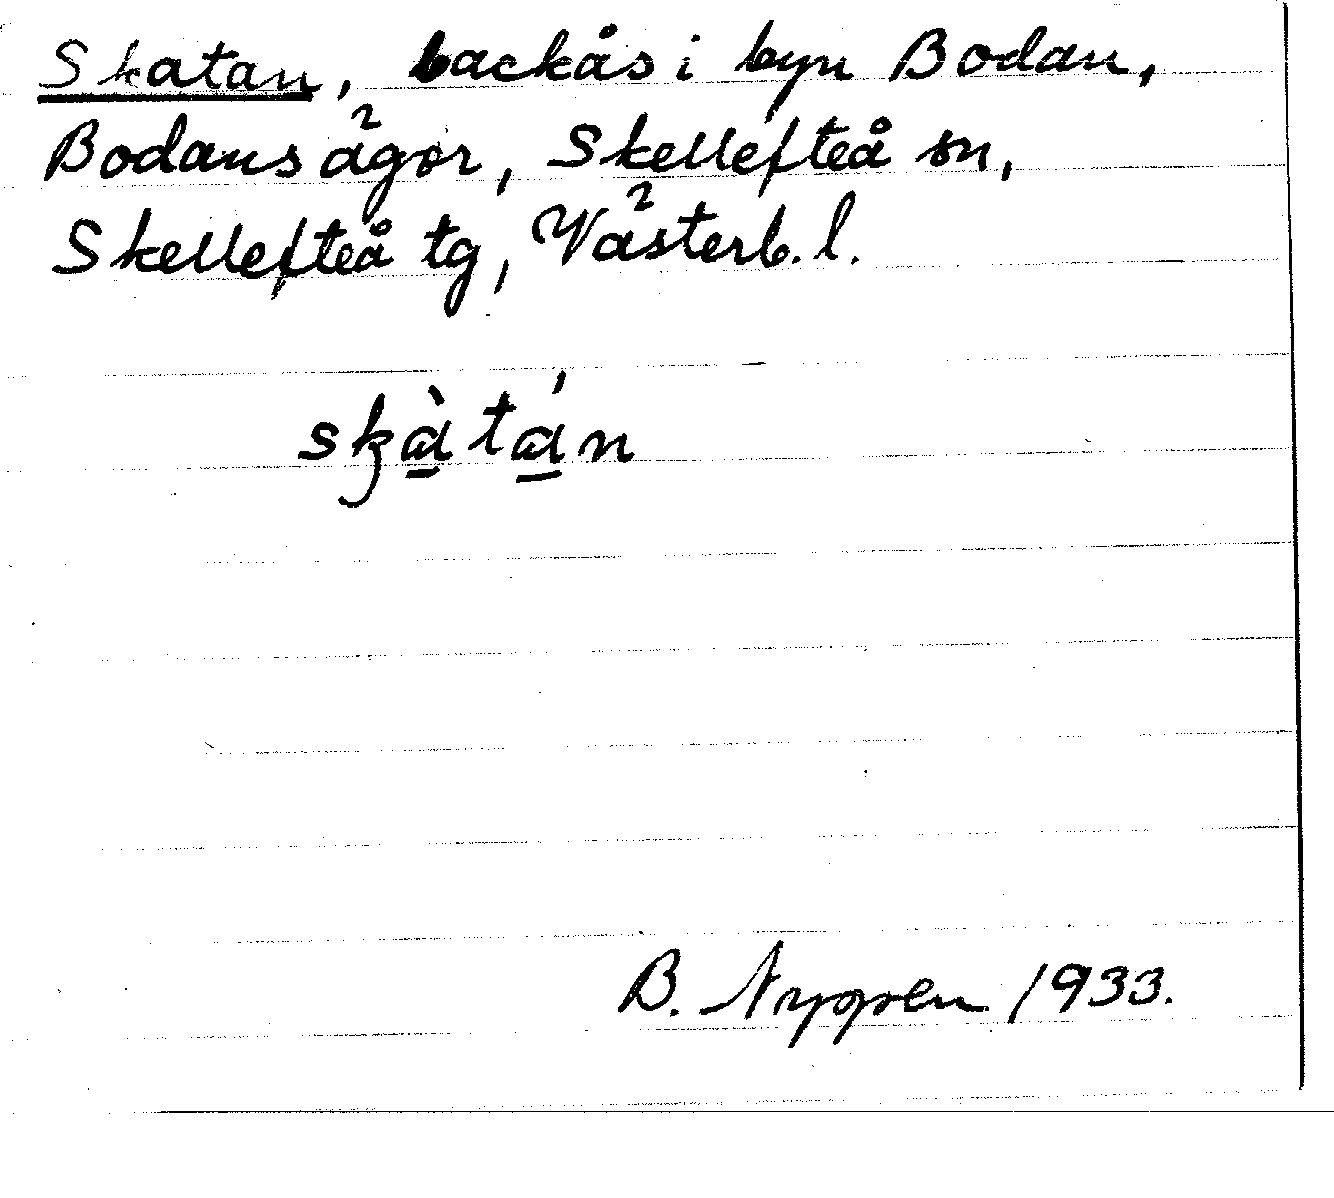 Skatan, backås i byn Bodan,
Bodans ägor, Skellefteå sn,
Skellefteå tg, Västerb. l.
skà̱tá̱n
B. Nygren 1933.